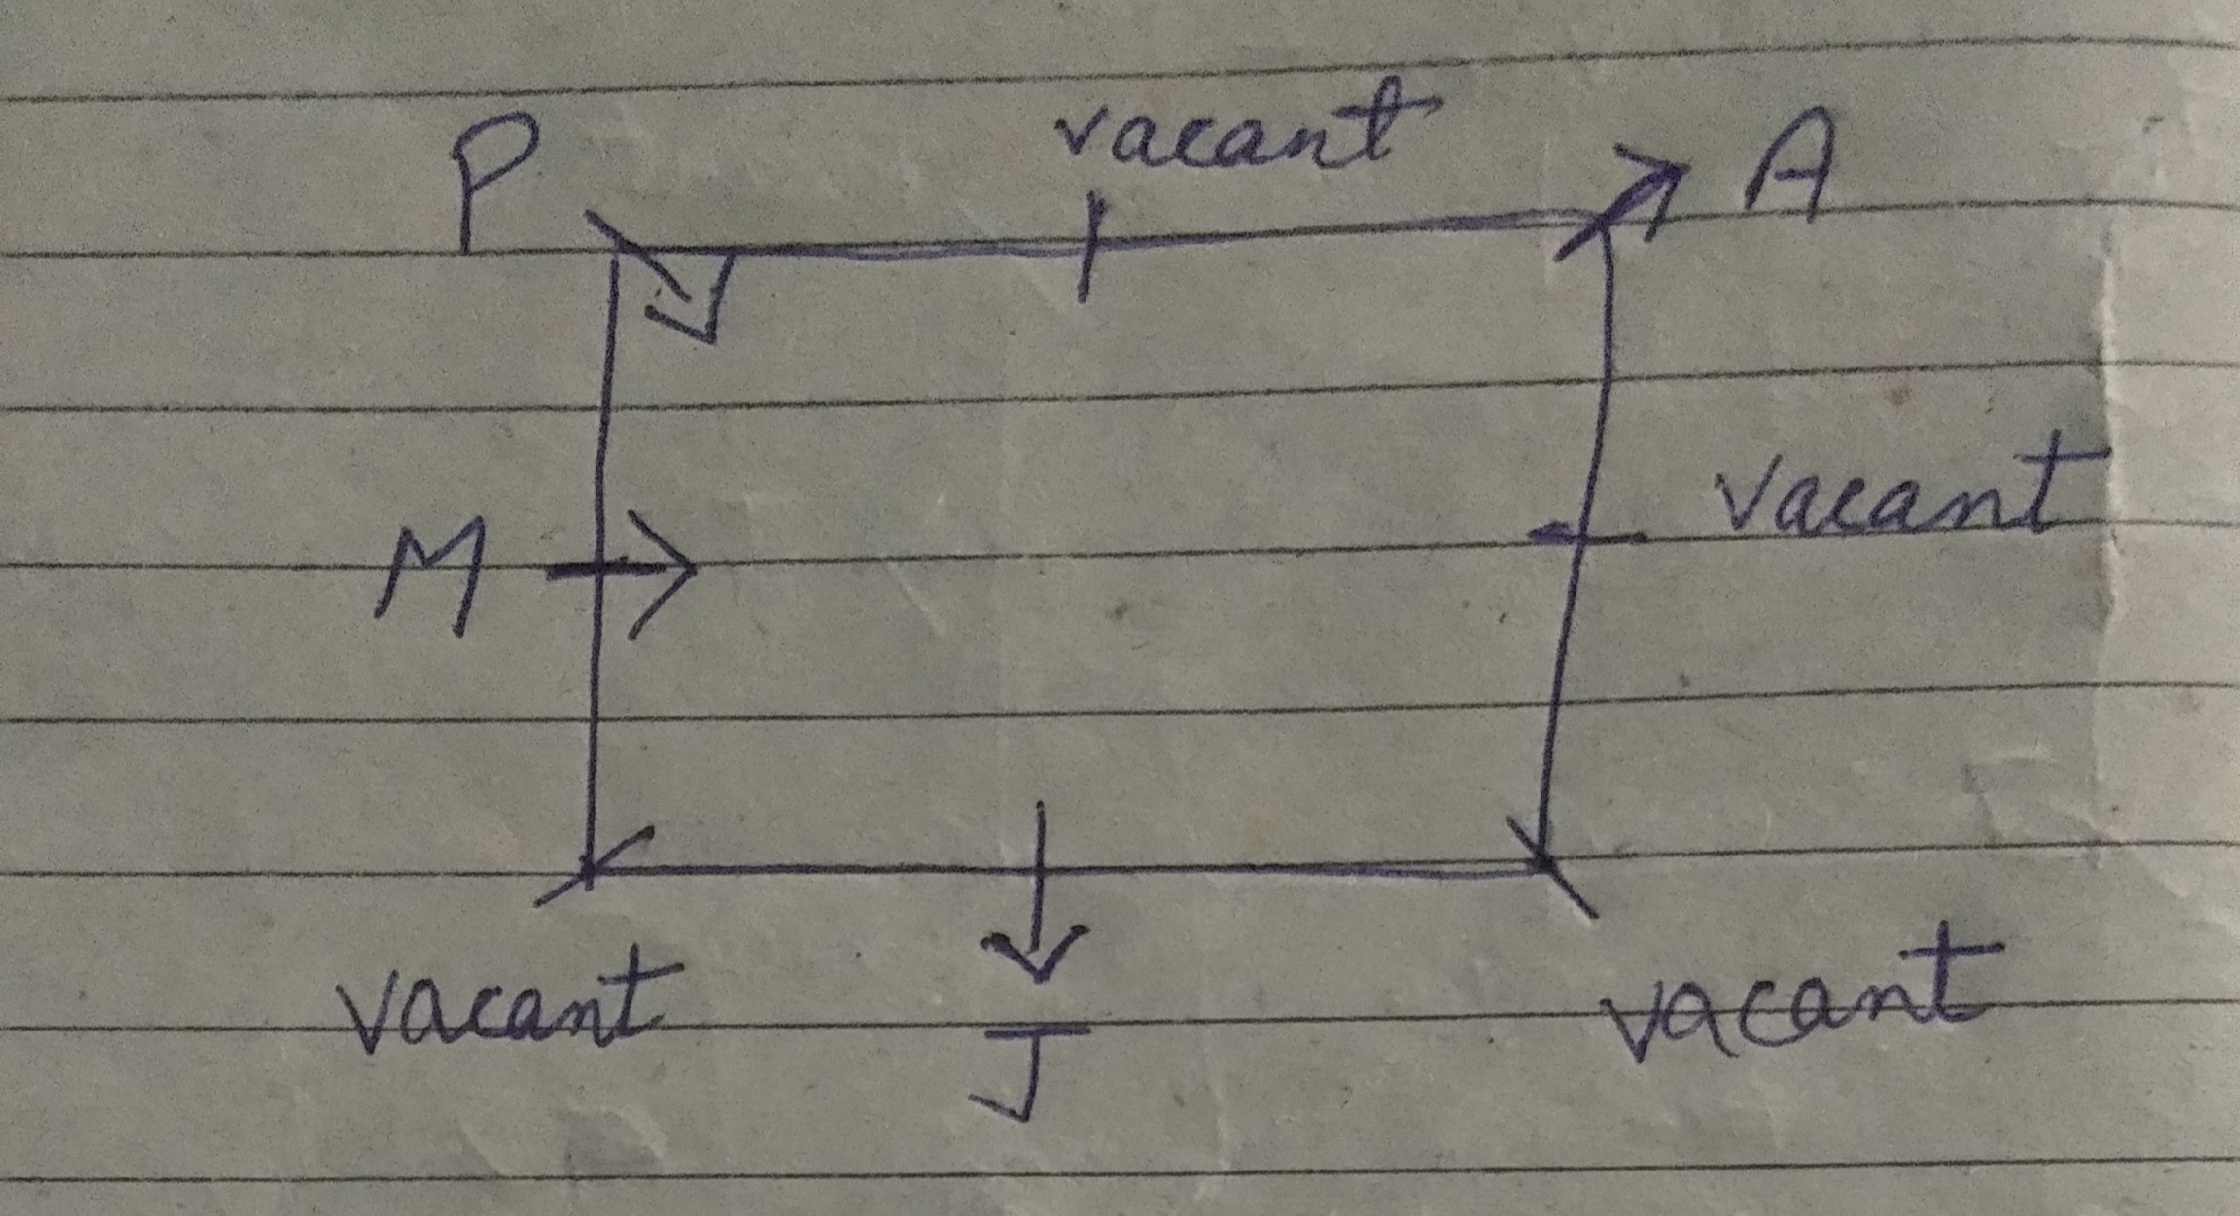 P vacant A
M vacant
vacant J vacant